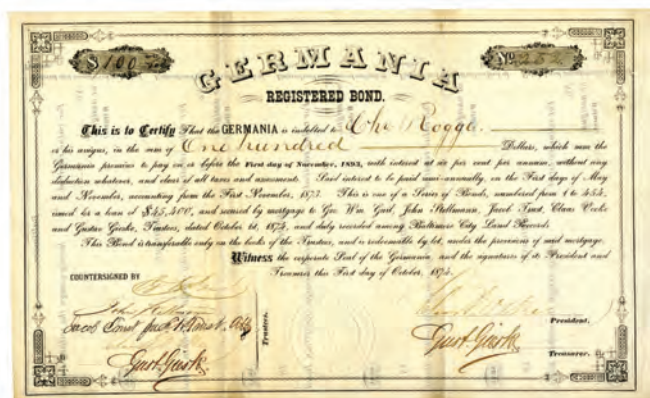 $100 No 252
GERMANIA
REGISTERED BOND.
This is to Certify That the GERMANIA is indebted to Chs Rogge
or his assigns, in the sum of One hundred Dollars, which sum the
Germania promises to pay on or before the First day of November, 1893, with interest at six per cent per annum, without any
deduction whatever, and clear of all taxes and assessments. Said interest to be paid semi-annually, on the First days of May
and November, accounting from the First November, 1873. This is one of a Series of Bonds, numbered from 1 to 454,
issued for a loan of $45,400, and secured by mortgage to Geo. Wm. Gail, John Stellmann, Jacob Trust, Claas Vocke
and Gustav Gieske, Trustees, dated October 1st, 1874, and duly recorded among Baltimore City Land Records.
This Bond is transferable only on the books of the Trustees, and is redeemable by lot, under the provisions of said mortgage.
Witness the corporate Seal of the Germania and the signatures of its President and
Treasurer this First day of October, 1874.
COUNTERSIGNED BY
Jacob Trust
Trustees.
President.
Gust. Gieske
Gust. Gieske
Treasurer.